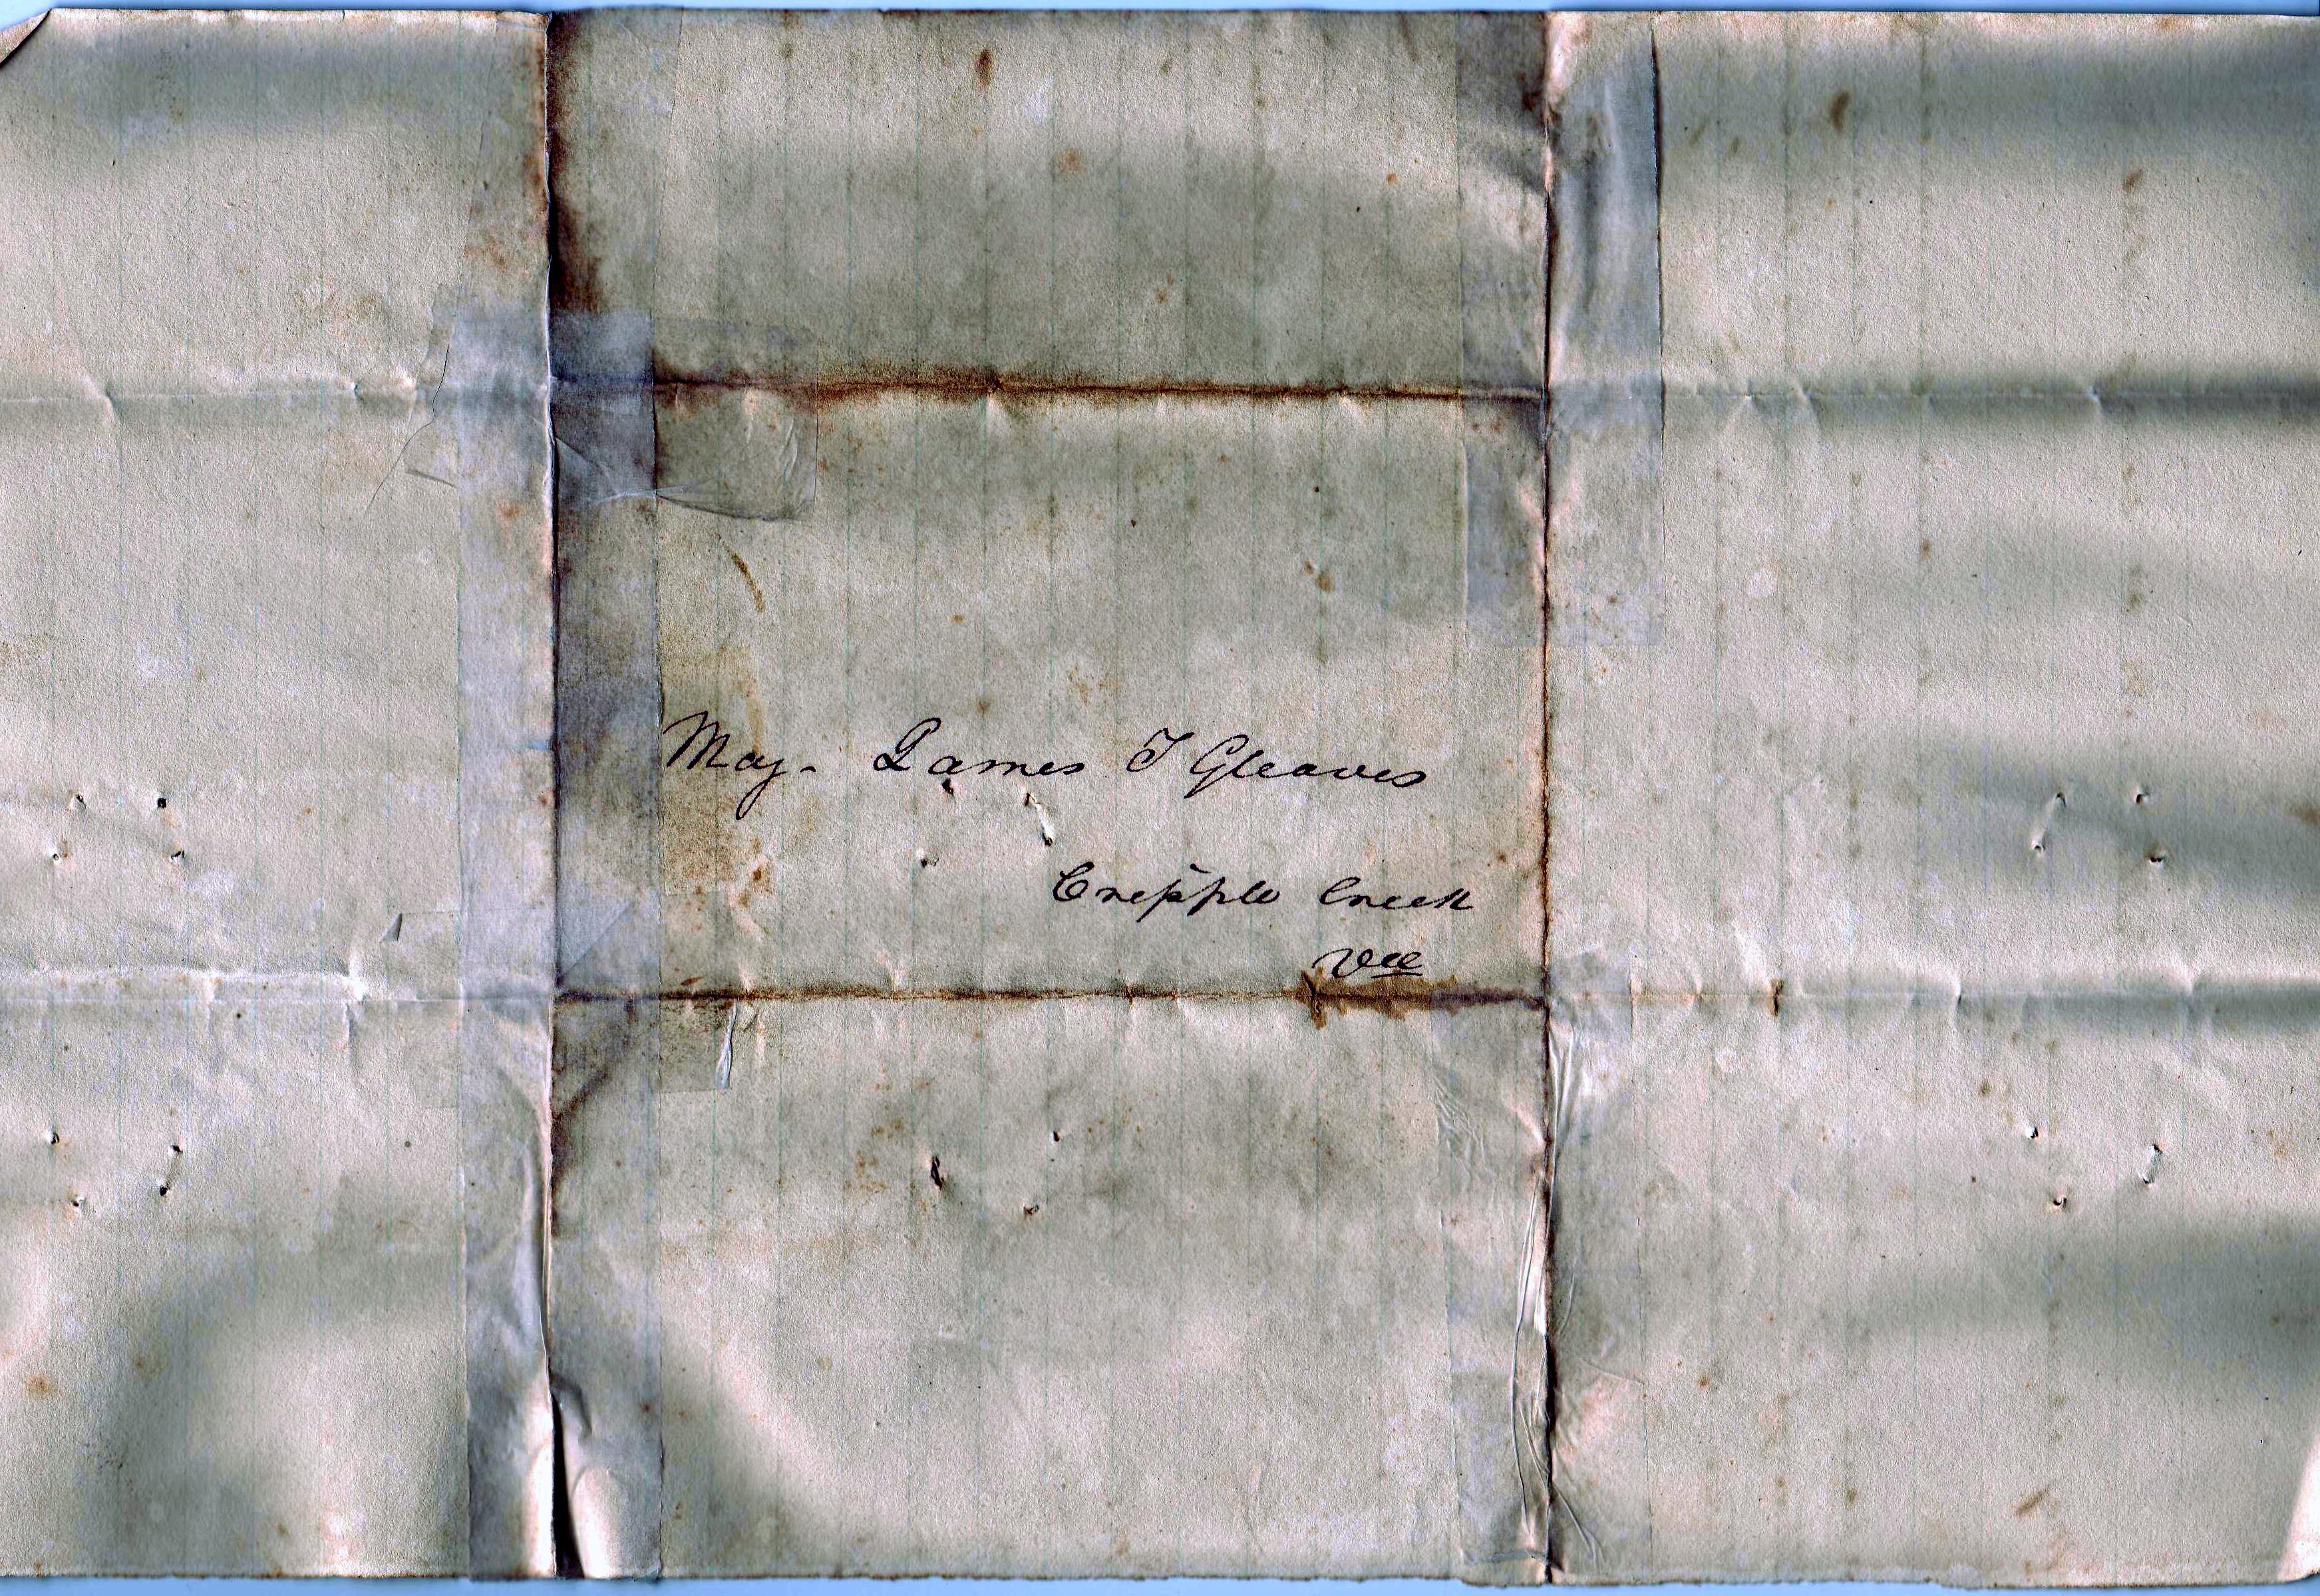 Maj. James T Gleaves
Cripple Creek
Va